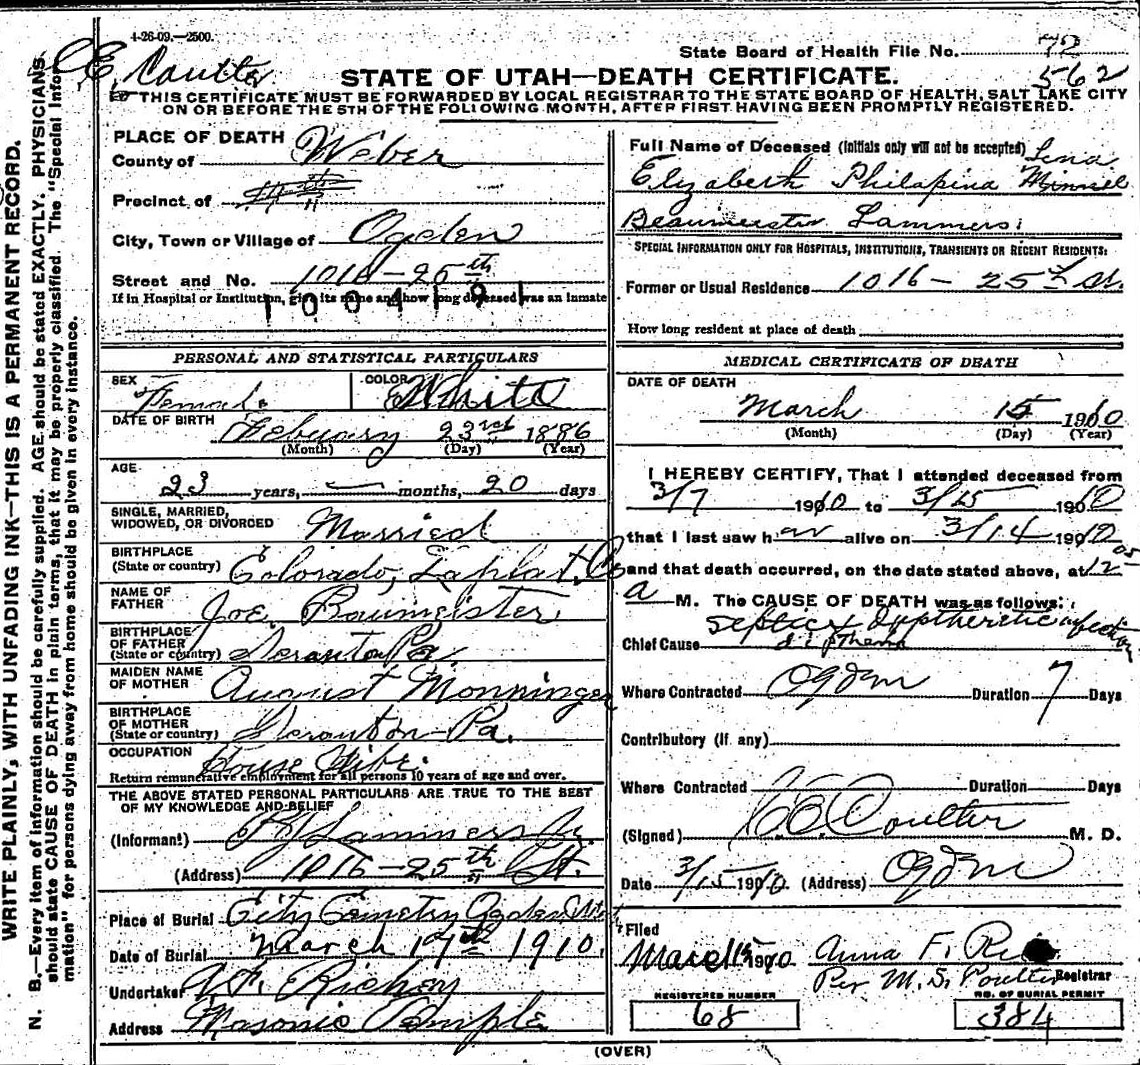 4-26-09.—2500.
C. E. Coulter
State Board of Health File No. 72
562
STATE OF UTAH—DEATH CERTIFICATE.
THIS CERTIFICATE MUST BE FORWARDED BY LOCAL REGISTRAR TO THE STATE BOARD OF HEALTH, SALT LAKE CITY
ON OR BEFORE THE 5TH OF THE FOLLOWING MONTH, AFTER FIRST HAVING BEEN PROMPTLY REGISTERED.
WRITE PLAINLY, WITH UNFADING INK—THIS IS A PERMANENT RECORD.
N. B.—Every item of information should be carefully supplied. AGE should be stated EXACTLY. PHYSICIANS
should state CAUSE OF DEATH in plain terms, that it may be properly classified. The "Special Infor-
mation" for persons dying away from home should be given in every instance.
PLACE OF DEATH
County of Weber
Precinct of
City, Town or Village of Ogden
Street and No. 1016-25th
If in Hospital or Institution, give its name and how long deceased was an inmate
1004191
PERSONAL AND STATISTICAL PARTICULARS
SEX Female COLOR White
DATE OF BIRTH Febuary 23rd 1886
(Month) (Day) (Year)
AGE
23 years, — months, 20 days
SINGLE, MARRIED,
WIDOWED, OR DIVORCED Married
BIRTHPLACE
(State or country) Colorado, Laplat. Co
NAME OF
FATHER Joe. Boumeister
BIRTHPLACE
OF FATHER
(State or country) Scranton Pa.
MAIDEN NAME
OF MOTHER August Monninger
BIRTHPLACE
OF MOTHER
(State or country) Scranton Pa.
OCCUPATION House Wife.
Return remunerative employment for all persons 10 years of age and over.
THE ABOVE STATED PERSONAL PARTICULARS ARE TRUE TO THE BEST
OF MY KNOWLEDGE AND BELIEF
(Informant) Lammers Jr.
(Address) 1016-25th St.
Place of Burial City Cemetry Ogden Utah
Date of Burial March 17th 1910.
Undertaker Richey
Address Masonic Temple
Full Name of Deceased (Initials only will not be accepted) Lena
Elizabeth Philapina Minnie
Beaumeister Lammers.
SPECIAL INFORMATION ONLY FOR HOSPITALS, INSTITUTIONS, TRANSIENTS OR RECENT RESIDENTS:
Former or Usual Residence 1016-25th St.
How long resident at place of death
MEDICAL CERTIFICATE OF DEATH
DATE OF DEATH
March 15 1910
(Month) (Day) (Year)
I HEREBY CERTIFY, That I attended deceased from
3/7 1910 to 3/15 1910
that I last saw her alive on 3/14 1910
and that death occurred, on the date stated above, at 12 05
a M. The CAUSE OF DEATH was as follows:
Chief Cause Septic & dyptheretic infection
dipthena
Where Contracted Ogden Duration 7 Days
Contributory (if any)
Where Contracted Duration Days
(Signed) C E Coulter M. D.
Date 3/15 1910. (Address) Ogden
Filed
March 15 1910 Anna F.
Per M. S. Poulter Registrar
REGISTERED NUMBER
68
NO. OF BURIAL PERMIT
384
(OVER)